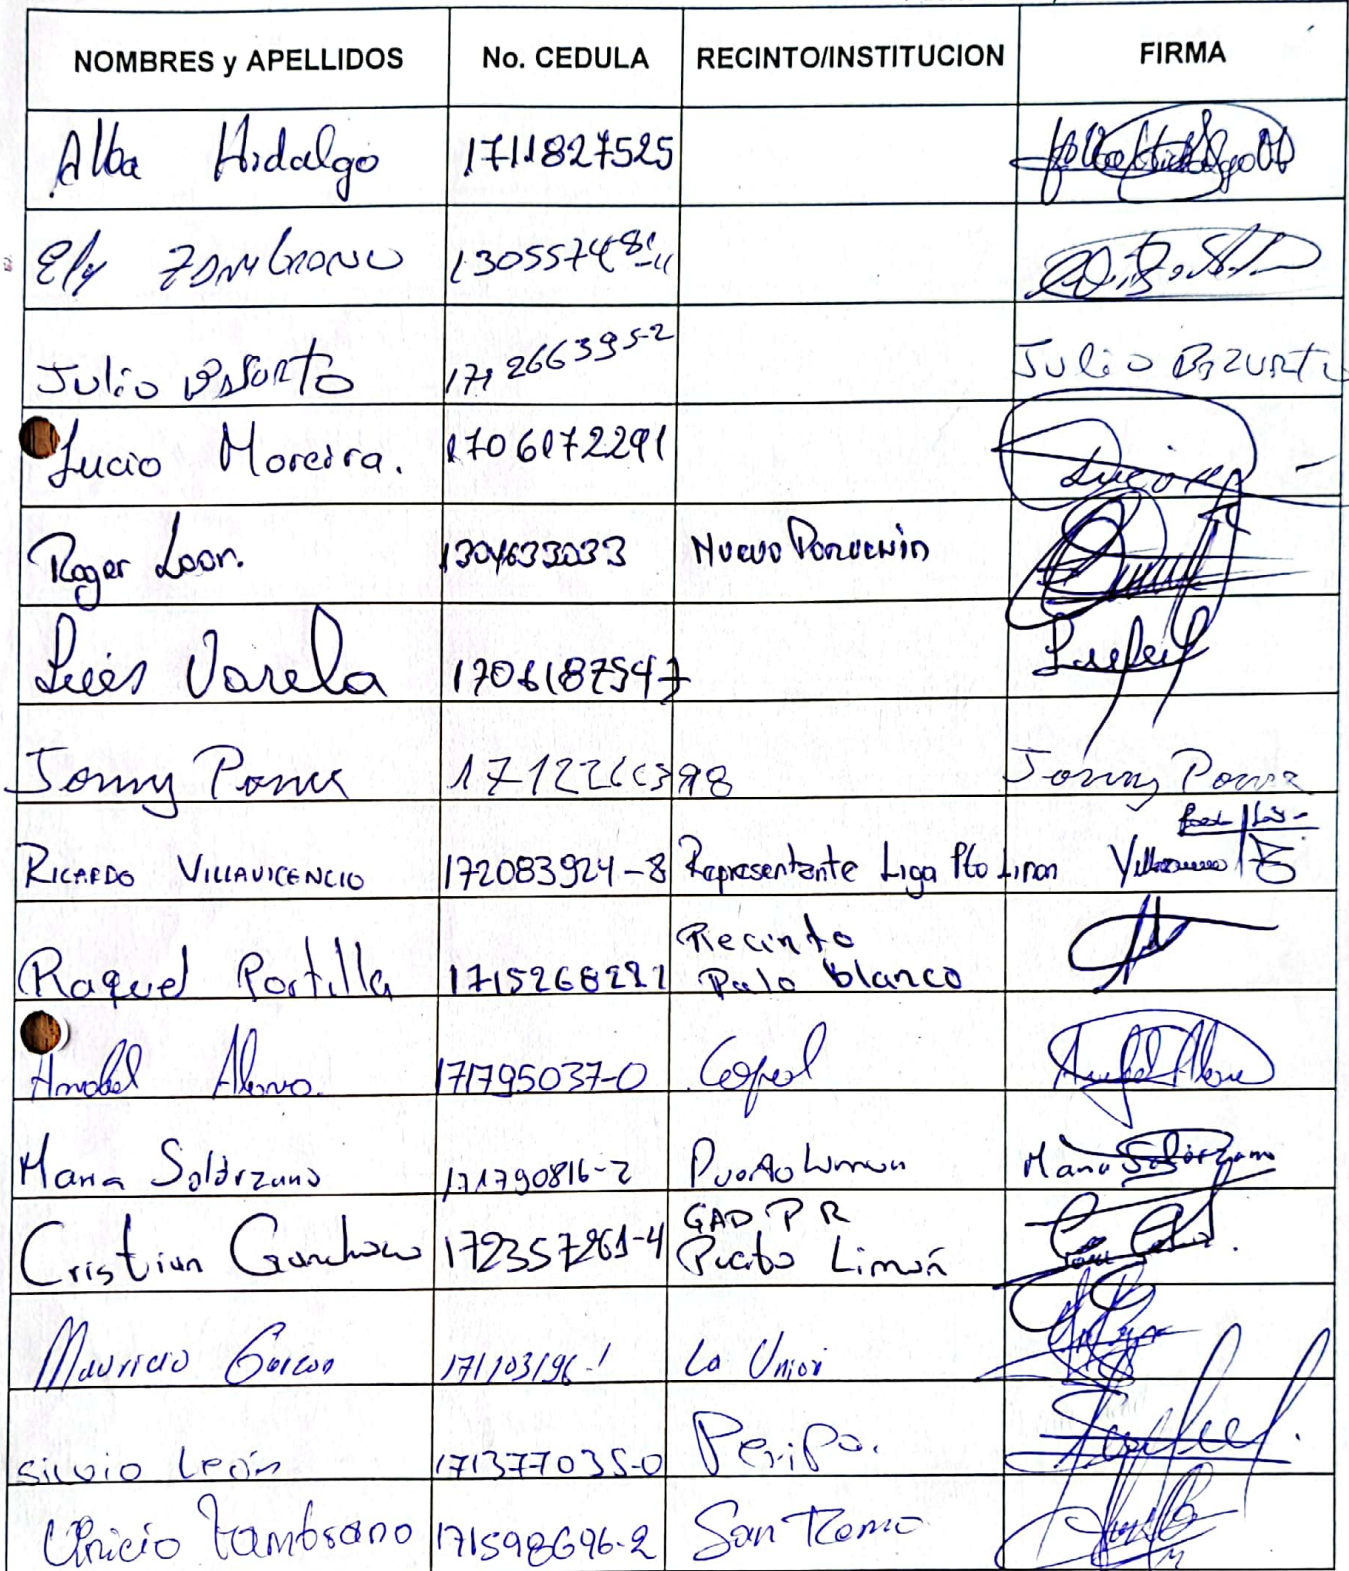 NOMBRES y APELLIDOS No. CEDULA RECINTO/INSTITUCION FIRMA
Alba Hidalgo 1711827525
Ely Zambrano
Julio Basurto 171266395-2 Julio Bazurto
Lucio Moreira. 1706172291
Roger Leon. 1304633033 Nuevo Porvenir
Luis Varela 1706187547
Jonny Ponce Jonny Ponce
RICARDO VILLAVICENCIO 172083924-8 Representante Liga Pto Limon
Raquel Portilla Recinto
Palo blanco
171795037-0 Copal
Maria Solórzano 171790816-2 Puerto Limon Maria Solórzano
Cristian 172357261-4 GAD P R
Puerto Limón
Mauricio Garzon 171103196-1 La Union
Silvio León 171377035-0 Peripa.
Zambrano 171598696-2 San Remo